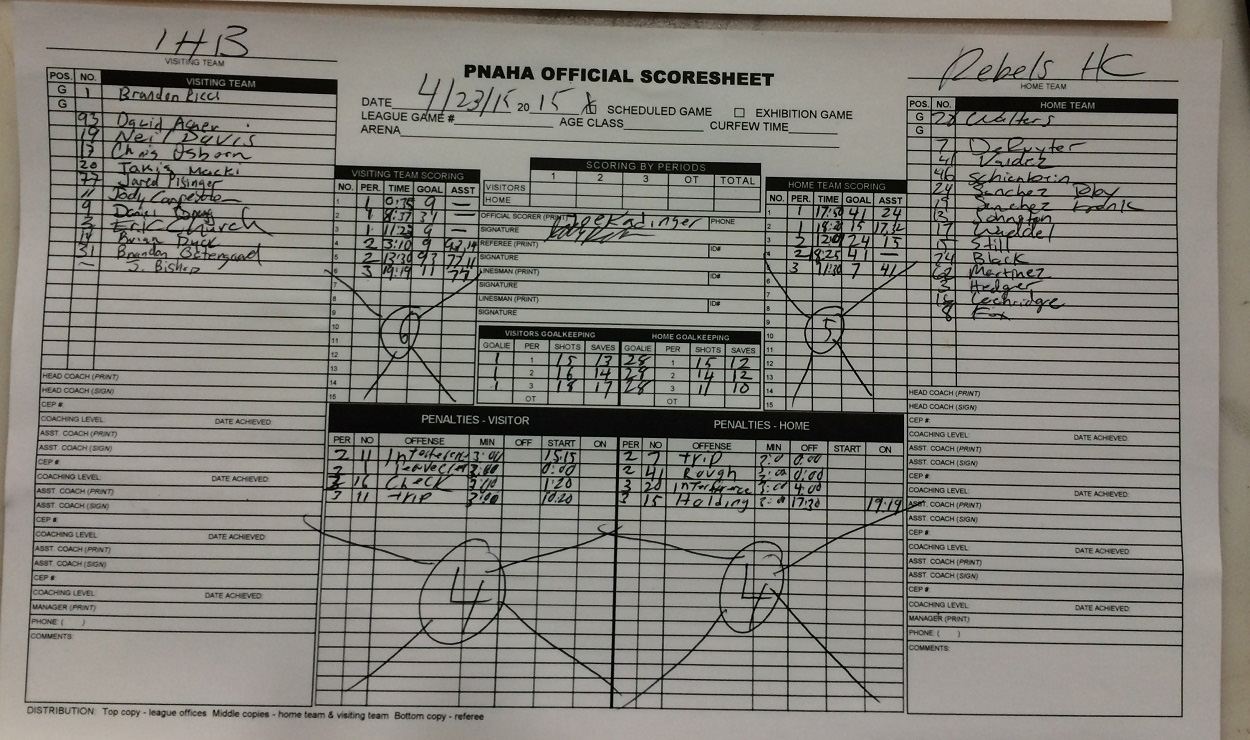 IHB
VISITING TEAM
Rebels HC
HOME TEAM
PNAHA OFFICIAL SCORESHEET
DATE 4/23/15 20 15 SCHEDULED GAME EXHIBITION GAME
LEAGUE GAME # AGE CLASS CURFEW TIME
ARENA
POS. NO. VISITING TEAM
G 1 Brandon Ricci
G
93 David Agner
19 Neil Davis
17 Chris Osborn
20 Takis Macki
77 Jared
11 Jody Carpenter
9 Daniel
Eric Church
14 Brian Dyck
31 Brandon Ostergaard
- J. Bishop
HEAD COACH (PRINT)
HEAD COACH (SIGN)
CEP #:
COACHING LEVEL DATE ACHIEVED:
ASST. COACH (PRINT)
ASST. COACH (SIGN)
CEP #:
COACHING LEVEL DATE ACHIEVED:
ASST. COACH (PRINT)
ASST. COACH (SIGN)
CEP #:
COACHING LEVEL DATE ACHIEVED:
ASST. COACH (PRINT)
ASST. COACH (SIGN)
CEP #:
COACHING LEVEL DATE ACHIEVED:
MANAGER (PRINT)
PHONE ( )
COMMENTS:
VISITING TEAM SCORING
NO. PER. TIME GOAL ASST
1 1 0:35 9 —
2 1 8:37 31 —
3 1 11:23 9 —
4 2 3:10 9 93,19
5 2 13:30 93 77/11
6 3 19:19 11 77
7
8
9
10
11
12
13
14
15
6
SCORING BY PERIODS
1 2 3 OT TOTAL
VISITORS
HOME
OFFICIAL SCORER (PRINT) Joe Kadinger PHONE
SIGNATURE
REFEREE (PRINT) ID#
SIGNATURE
LINESMAN (PRINT) ID#
SIGNATURE
LINESMAN (PRINT) ID#
SIGNATURE
VISITORS GOALKEEPING HOME GOALKEEPING
GOALIE PER SHOTS SAVES GOALIE PER SHOTS SAVES
1 1 15 13 28 1 15 12
1 2 16 14 28 2 14 12
1 3 18 17 28 3 11 10
OT OT
HOME TEAM SCORING
NO. PER. TIME GOAL ASST
1 1 17:50 41 24
2 1 15 17,
3 2 24 15
4 2 18:25 41 —
5 3 11:30 7 41
6
7
8
9
10
11
12
13
14
15
5
POS. NO. HOME TEAM
G 28 Walters
G
7 DeRuyter
41 Valdez
46
24 Sanchez Toby
Sanchez Frank
13 Johnston
17 Waddel
15 Still
24 Black
62 Martinez
3 Hedger
Lechridge
8 Fox
HEAD COACH (PRINT)
HEAD COACH (SIGN)
CEP #:
COACHING LEVEL DATE ACHIEVED:
ASST. COACH (PRINT)
ASST. COACH (SIGN)
CEP #:
COACHING LEVEL DATE ACHIEVED:
ASST. COACH (PRINT)
ASST. COACH (SIGN)
CEP #:
COACHING LEVEL DATE ACHIEVED:
ASST. COACH (PRINT)
ASST. COACH (SIGN)
CEP #:
COACHING LEVEL DATE ACHIEVED:
MANAGER (PRINT)
PHONE ( )
COMMENTS:
PENALTIES - VISITOR
PER NO OFFENSE MIN OFF START ON
2 11 Interference 3:00 15:15
2 1 0:00
3 16 Check 1:20
3 11 trip 3:00 10:20
4
PENALTIES - HOME
PER NO OFFENSE MIN OFF START ON
2 7 trip 3:00 0:00
2 41 Rough 3:00 0:00
3 20 Interference 3:00 4:00
3 15 Holding 3:00 17:30 19:19
4
DISTRIBUTION: Top copy - league offices Middle copies - home team & visiting team Bottom copy - referee